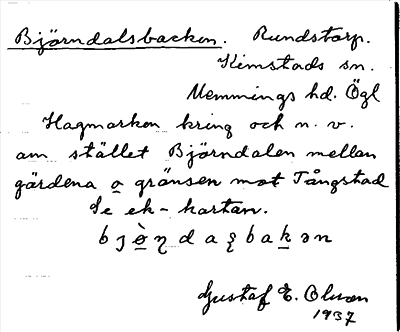 Björndalsbacken. Rundstorp.
Kimstads sn.
Memmings hd. Ögl
Hagmarken kring och n. v.
om stället Björndalen mellan
gärdena o gränsen mot Tångstad
Se ek-kartan.
Gustaf E. Olsson
1937